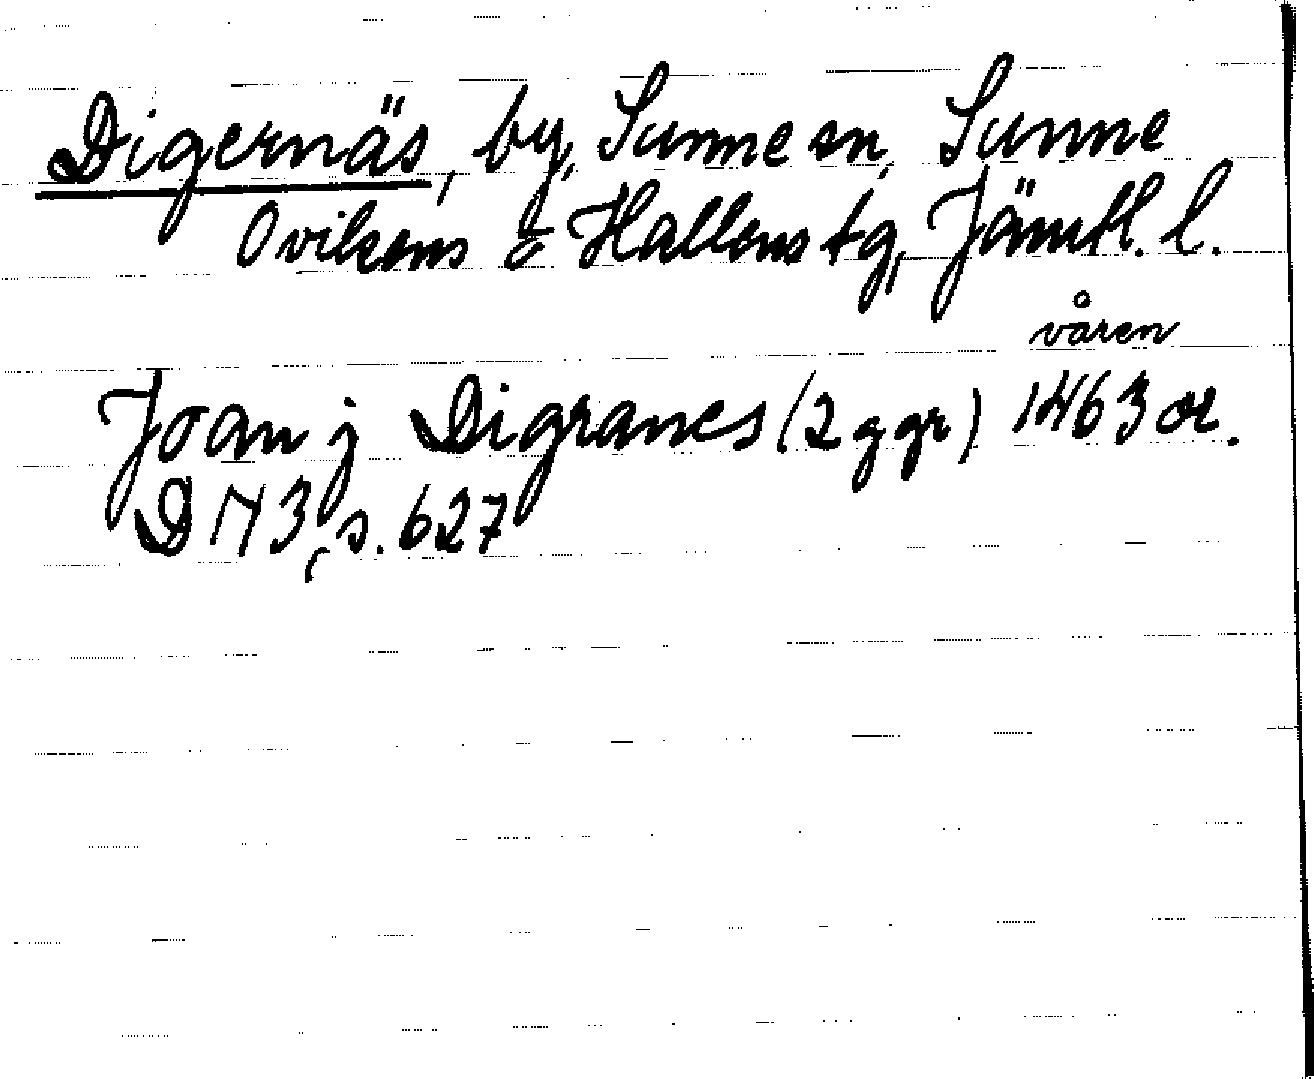 Digernäs, by, Sunne sn, Sunne
Ovikens o Hallens tg, Jämtl. l.
våren
Joan j Digranes (2 ggr) 1463 or.
D 173, s. 627